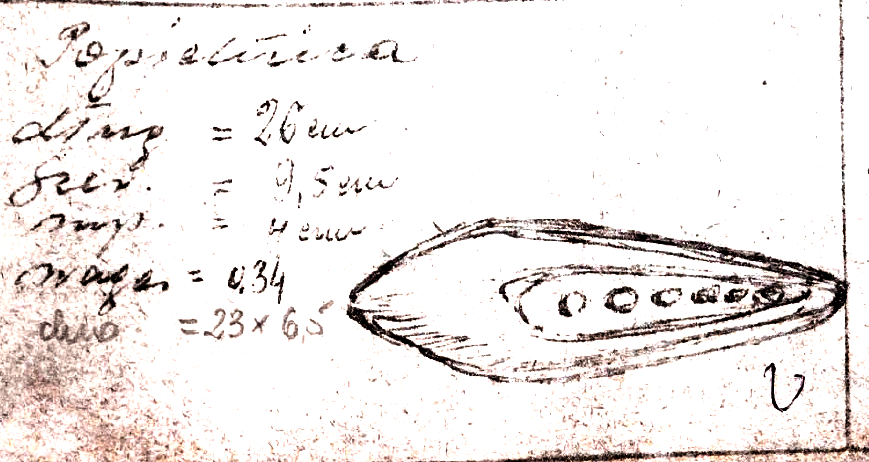 Popielnica
dług. = 26 cm
szer. = 9,5 cm
wys. = 4 cm
waga = 0,34
dno = 23 × 6,5